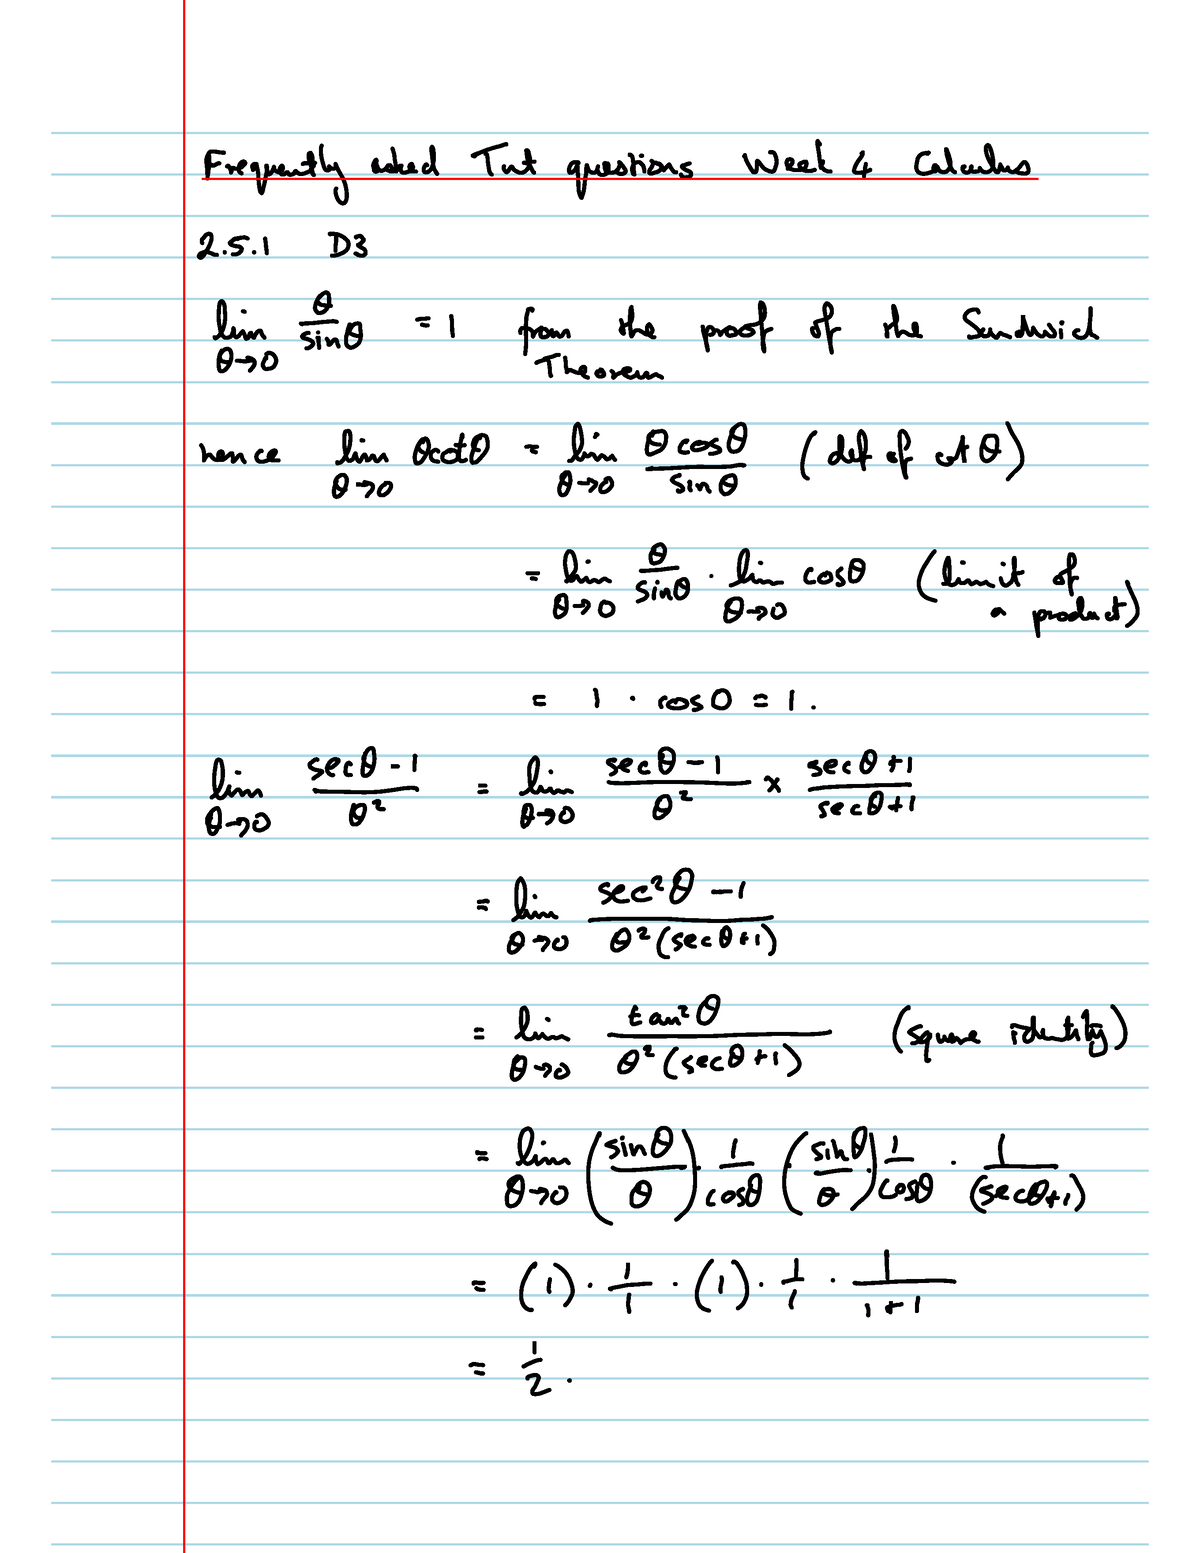 Frequently asked Tut questions Week 4 Calculus
2.5.1 D3
lim θ→0 θ/sinθ = 1 from the proof of the Sandwich
Theorem
hence lim θ→0 θcotθ = lim θ→0 θcosθ/sinθ (def of cot θ)
= lim θ→0 θ/sinθ · lim θ→0 cosθ (limit of
a product)
= 1 · cos0 = 1.
lim θ→0 secθ-1/θ² = lim θ→0 secθ-1/θ² × secθ+1/secθ+1
= lim θ→0 sec²θ-1/θ²(secθ+1)
= lim θ→0 tan²θ/θ²(secθ+1) (square identity)
= lim θ→0 (sinθ/θ)·1/cosθ (sinθ/θ)·1/cosθ · 1/(secθ+1)
= (1)·1/1·(1)·1/1·1/1+1
= 1/2.